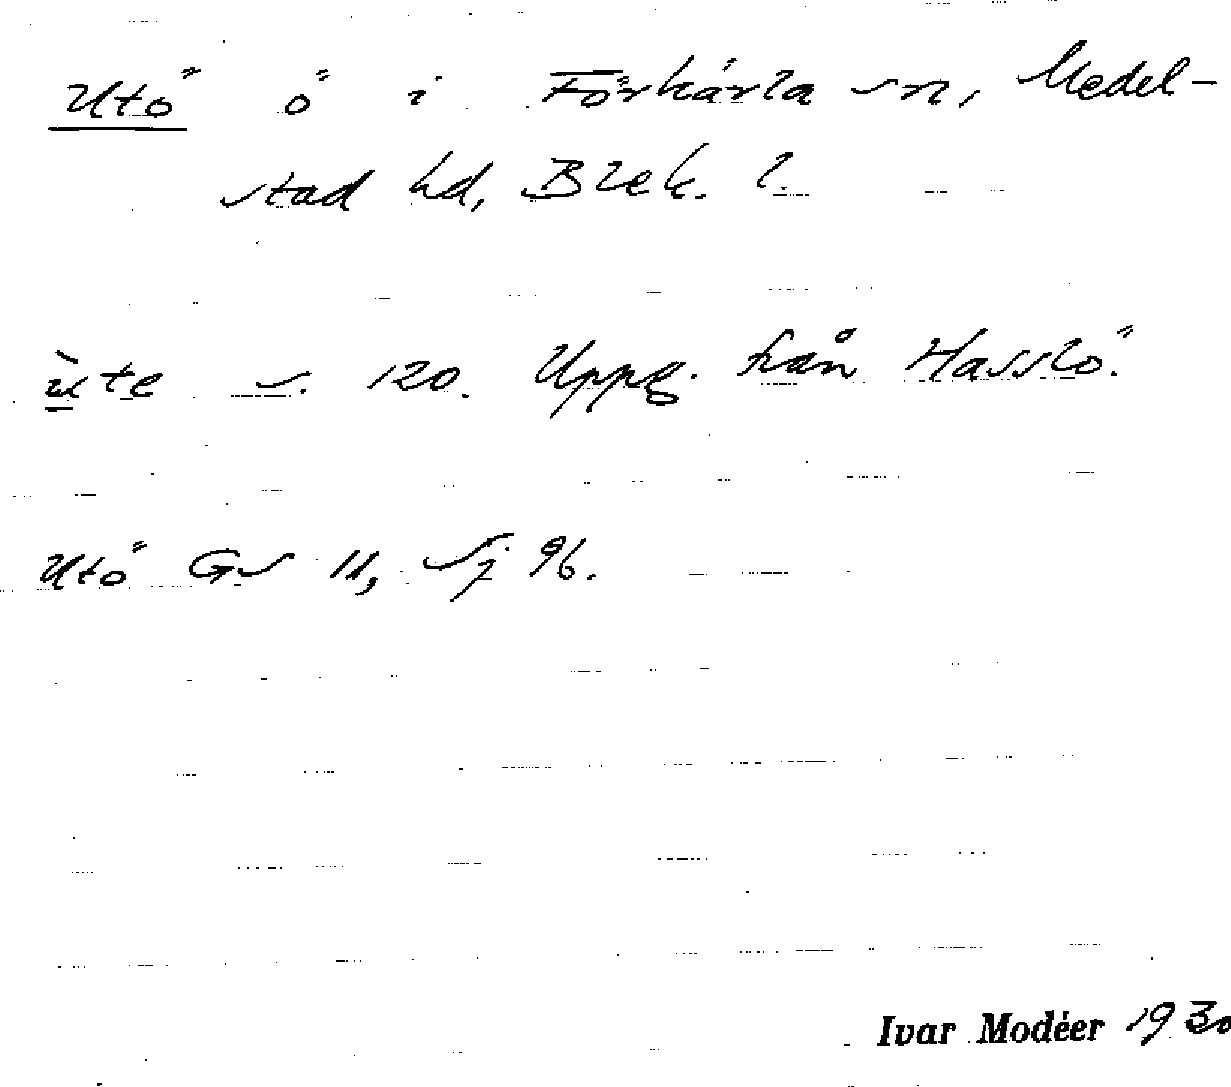 Utö ö i Förkärla sn, Medel-
stad hd, Blek. l.
ùte s. 120. Uppg. från Hasslö.
Utö GS 11, Sj 96.
Ivar Modéer 1930